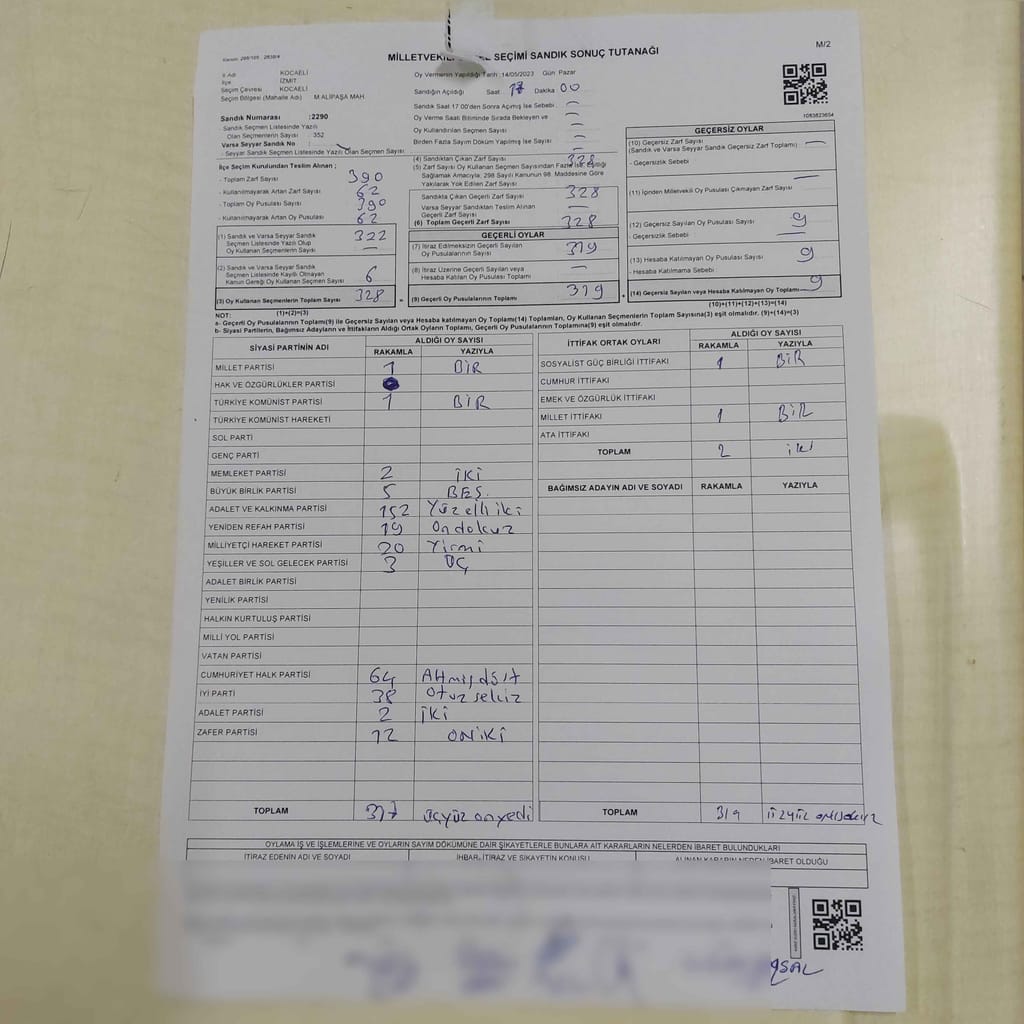 M/2
SEÇİMİ SANDIK SONUÇ TUTANAĞI
İl Adı KOCAELİ
İlçe İZMİT
Seçim Çevresi KOCAELİ
Seçim Bölgesi (Mahalle Adı) M.ALİPAŞA MAH.
Sandık Numarası :2290
- Sandık Seçmen Listesinde Yazılı
Olan Seçmenlerin Sayısı 352
Varsa Seyyar Sandık No
- Seyyar Sandık Seçmen Listesinde Yazılı Olan Seçmen Sayısı
İlçe Seçim Kurulundan Teslim Alınan ;
- Toplam Zarf Sayısı 390
- Kullanılmayarak Artan Zarf Sayısı 62
- Toplam Oy Pusulası Sayısı 390
- Kullanılmayarak Artan Oy Pusulası 62
(1) Sandık ve Varsa Seyyar Sandık 322
Seçmen Listesinde Yazılı Olup
Oy Kullanan Seçmenlerin Sayısı
(2) Sandık ve Varsa Seyyar Sandık
Seçmen Listesinde Kayıtlı Olmayan 6
Kanun Gereği Oy Kullanan Seçmen Sayısı
(3) Oy Kullanan Seçmenlerin Toplam Sayısı 328
(1)+(2)=(3)
Oy Vermenin Yapıldığı Tarih :14/05/2023 Gün Pazar
Sandığın Açıldığı Saat 17 Dakika 00
Sandık Saat 17:00'den Sonra Açmış İse Sebebi
Oy Verme Saati Bitiminde Sırada Bekleyen ve
Oy Kullandırılan Seçmen Sayısı
Birden Fazla Sayım Döküm Yapılmış İse Sayısı
(4) Sandıktan Çıkan Zarf Sayısı 328
(5) Zarf Sayısı Oy Kullanan Seçmen Sayısından Fazla İse, Eşitliği
Sağlamak Amacıyla; 298 Sayılı Kanunun 98. Maddesine Göre
Yakılarak Yok Edilen Zarf Sayısı
Sandıkta Çıkan Geçerli Zarf Sayısı 328
Varsa Seyyar Sandıktan Teslim Alınan
Geçerli Zarf Sayısı
(6) Toplam Geçerli Zarf Sayısı 328
GEÇERLİ OYLAR
(7) İtiraz Edilmeksizin Geçerli Sayılan 319
Oy Pusulalarının Sayısı
(8) İtiraz Üzerine Geçerli Sayılan veya
Hesaba Katılan Oy Pusulası Toplamı
(9) Geçerli Oy Pusulalarının Toplamı 319
1083823654
GEÇERSİZ OYLAR
(10) Geçersiz Zarf Sayısı
(Sandık ve Varsa Seyyar Sandık Geçersiz Zarf Toplamı)
- Geçersizlik Sebebi
(11) İçinden Milletvekili Oy Pusulası Çıkmayan Zarf Sayısı
(12) Geçersiz Sayılan Oy Pusulası Sayısı 9
- Geçersizlik Sebebi
(13) Hesaba Katılmayan Oy Pusulası Sayısı 9
- Hesaba Katılmama Sebebi
(14) Geçersiz Sayılan veya Hesaba Katılmayan Oy Toplamı 9
(10)+(11)+(12)+(13)=(14)
NOT:
a- Geçerli Oy Pusulalarının Toplamı(9) ile Geçersiz Sayılan veya Hesaba katılmayan Oy Toplamı(14) Toplamları, Oy Kullanan Seçmenlerin Toplam Sayısına(3) eşit olmalıdır. (9)+(14)=(3)
b- Siyasi Partilerin, Bağımsız Adayların ve İttifakların Aldığı Ortak Oyların Toplamı, Geçerli Oy Pusulalarının Toplamına(9) eşit olmalıdır.
SİYASİ PARTİNİN ADI ALDIĞI OY SAYISI
RAKAMLA YAZIYLA
MİLLET PARTİSİ 1 BİR
HAK VE ÖZGÜRLÜKLER PARTİSİ
TÜRKİYE KOMÜNİST PARTİSİ 1 BİR
TÜRKİYE KOMÜNİST HAREKETİ
SOL PARTİ
GENÇ PARTİ
MEMLEKET PARTİSİ 2 İKİ
BÜYÜK BİRLİK PARTİSİ 5 BEŞ
ADALET VE KALKINMA PARTİSİ 152 Yüzelli iki
YENİDEN REFAH PARTİSİ 19 Ondokuz
MİLLİYETÇİ HAREKET PARTİSİ 20 Yirmi
YEŞİLLER VE SOL GELECEK PARTİSİ 3 ÜÇ
ADALET BİRLİK PARTİSİ
YENİLİK PARTİSİ
HALKIN KURTULUŞ PARTİSİ
MİLLİ YOL PARTİSİ
VATAN PARTİSİ
CUMHURİYET HALK PARTİSİ 64 Altmışdört
İYİ PARTİ 38 Otuz sekiz
ADALET PARTİSİ 2 İKİ
ZAFER PARTİSİ 12 ONİKİ
TOPLAM 317 üçyüz onyedi
İTTİFAK ORTAK OYLARI ALDIĞI OY SAYISI
RAKAMLA YAZIYLA
SOSYALİST GÜÇ BİRLİĞİ İTTİFAKI 1 BİR
CUMHUR İTTİFAKI
EMEK VE ÖZGÜRLÜK İTTİFAKI
MİLLET İTTİFAKI 1 BİR
ATA İTTİFAKI
TOPLAM 2 iki
BAĞIMSIZ ADAYIN ADI VE SOYADI RAKAMLA YAZIYLA
TOPLAM 319
OYLAMA İŞ VE İŞLEMLERİNE VE OYLARIN SAYIM DÖKÜMÜNE DAİR ŞİKAYETLERLE BUNLARA AİT KARARLARIN NELERDEN İBARET BULUNDUKLARI
İTİRAZ EDENİN ADI VE SOYADI İHBAR, İTİRAZ VE ŞİKAYETİN KONUSU ALINAN KARARIN NEDEN İBARET OLDUĞU